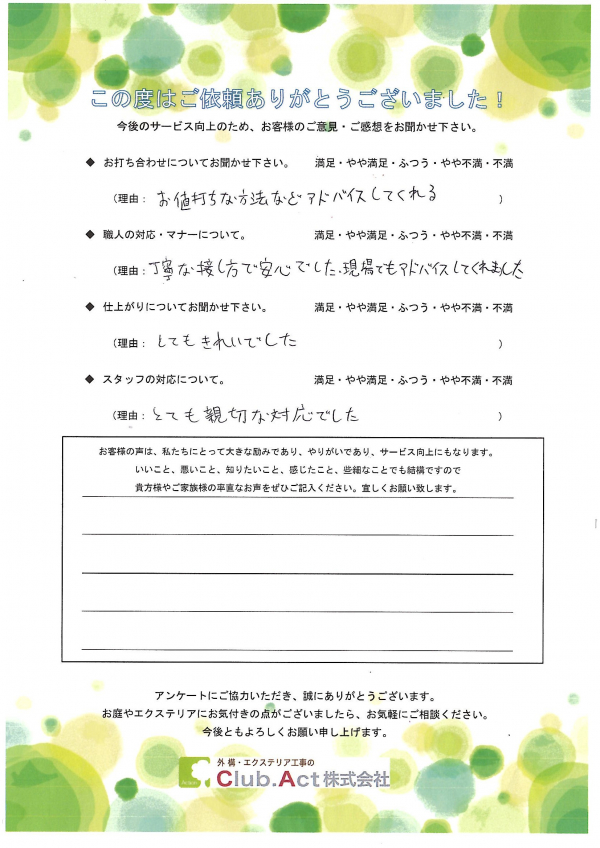 この度はご依頼ありがとうございました！
今後のサービス向上のため、お客様のご意見・ご感想をお聞かせ下さい。
◆ お打ち合わせについてお聞かせ下さい。 満足・やや満足・ふつう・やや不満・不満
（理由： お値打ちな方法などアドバイスしてくれる ）
◆ 職人の対応・マナーについて。 満足・やや満足・ふつう・やや不満・不満
（理由： 丁寧な接し方で安心でした、現場でもアドバイスしてくれました
◆ 仕上がりについてお聞かせ下さい。 満足・やや満足・ふつう・やや不満・不満
（理由： とてもきれいでした ）
◆ スタッフの対応について。 満足・やや満足・ふつう・やや不満・不満
（理由： とても親切な対応でした ）
お客様の声は、私たちにとって大きな励みであり、やりがいであり、サービス向上にもなります。
いいこと、悪いこと、知りたいこと、感じたこと、些細なことでも結構ですので
貴方様やご家族様の率直なお声をぜひご記入ください。宜しくお願い致します。
アンケートにご協力いただき、誠にありがとうございます。
お庭やエクステリアにお気付きの点がございましたら、お気軽にご相談ください。
今後ともよろしくお願い申し上げます。
外構・エクステリア工事の
Club.Act株式会社